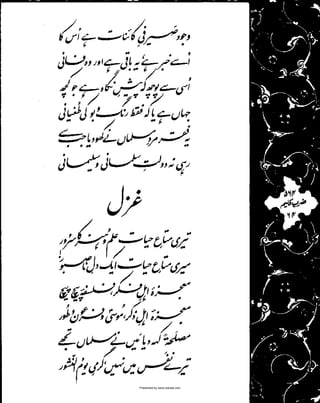 وجود صیرفی کائنات ہے اس کا
اسے خبر ہے، یہ باقی ہے اور وہ فانی
اسی سے پوچھ کہ پیشِ نگاہ ہے جو کچھ
جہاں ہے یا کہ فقط رنگ و بو کی طغیانی
یہ فقر مردِ مسلماں نے کھو دیا جب سے
رہی نہ دولتِ سلمانی و سلیمانی
غزل
تیری متاعِ حیات، علم و ہنر کا سرور
میری متاعِ حیات ایک دلِ ناصبور
معجزۂ اہلِ فکر، فلسفۂ پیچ پیچ
معجزۂ اہلِ ذکر، موسیٰ و فرعون و طور
مصلحتاً کہہ دیا میں نے مسلماں تجھے
تیرے نفس میں نہیں گرمیِ یوم النشور
ضربِ کلیم
Presented by www.ziaraat.com